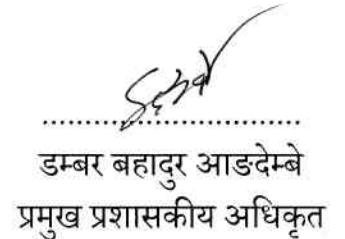 ..............................
डम्बर बहादुर आङदेम्बे
प्रमुख प्रशासकीय अधिकृत